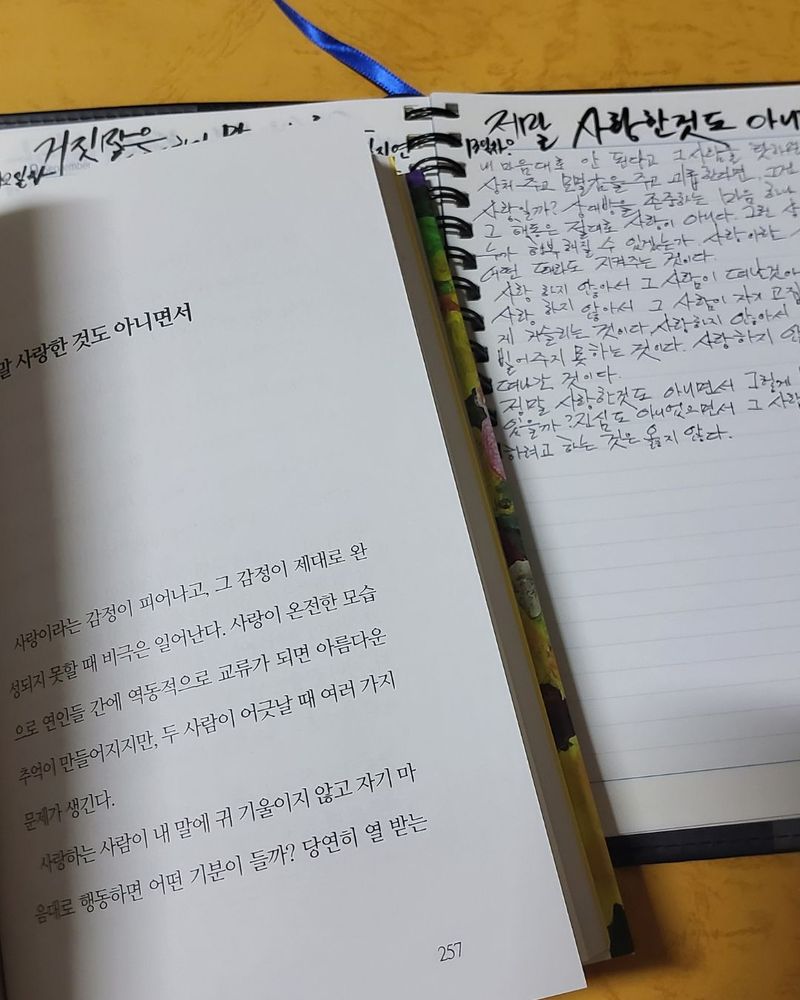 거짓말은
말 사랑한 것도 아니면서
사랑이라는 감정이 피어나고, 그 감정이 제대로 완
성되지 못할 때 비극은 일어난다. 사랑이 온전한 모습
으로 연인들 간에 역동적으로 교류가 되면 아름다운
추억이 만들어지지만, 두 사람이 어긋날 때 여러 가지
문제가 생긴다.
사랑하는 사람이 내 말에 귀 기울이지 않고 자기 마
음대로 행동하면 어떤 기분이 들까? 당연히 열 받는
257
사랑한것도 아니
내 마음대로 안 된다고 그 사람을
상처 주고 모멸감을 주고 괴롭힌다면
사랑일까? 상대방을 존중하는 마음 하나
그 행동은 절대로 사랑이 아니다. 그런
누가 행복해질 수 있겠는가. 사랑이란
어떤 때라도 지켜주는 것이다.
사랑 하지 않아서 그 사람이 떠난것이
사랑 하지 않아서 그 사람이 자기 고집
게 거슬리는 것이다. 사랑하지 않아서
빌어주지 못하는 것이다. 사랑하지
떠나간 것이다.
정말 사랑한것도 아니면서 그렇게
있을까? 진심도 아니었으면서 그 사람
하려고 하는 것은 옳지 않다.